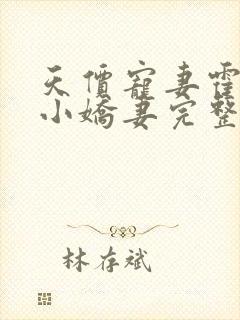 天價寵妻霍
小嬌妻完整
林存斌